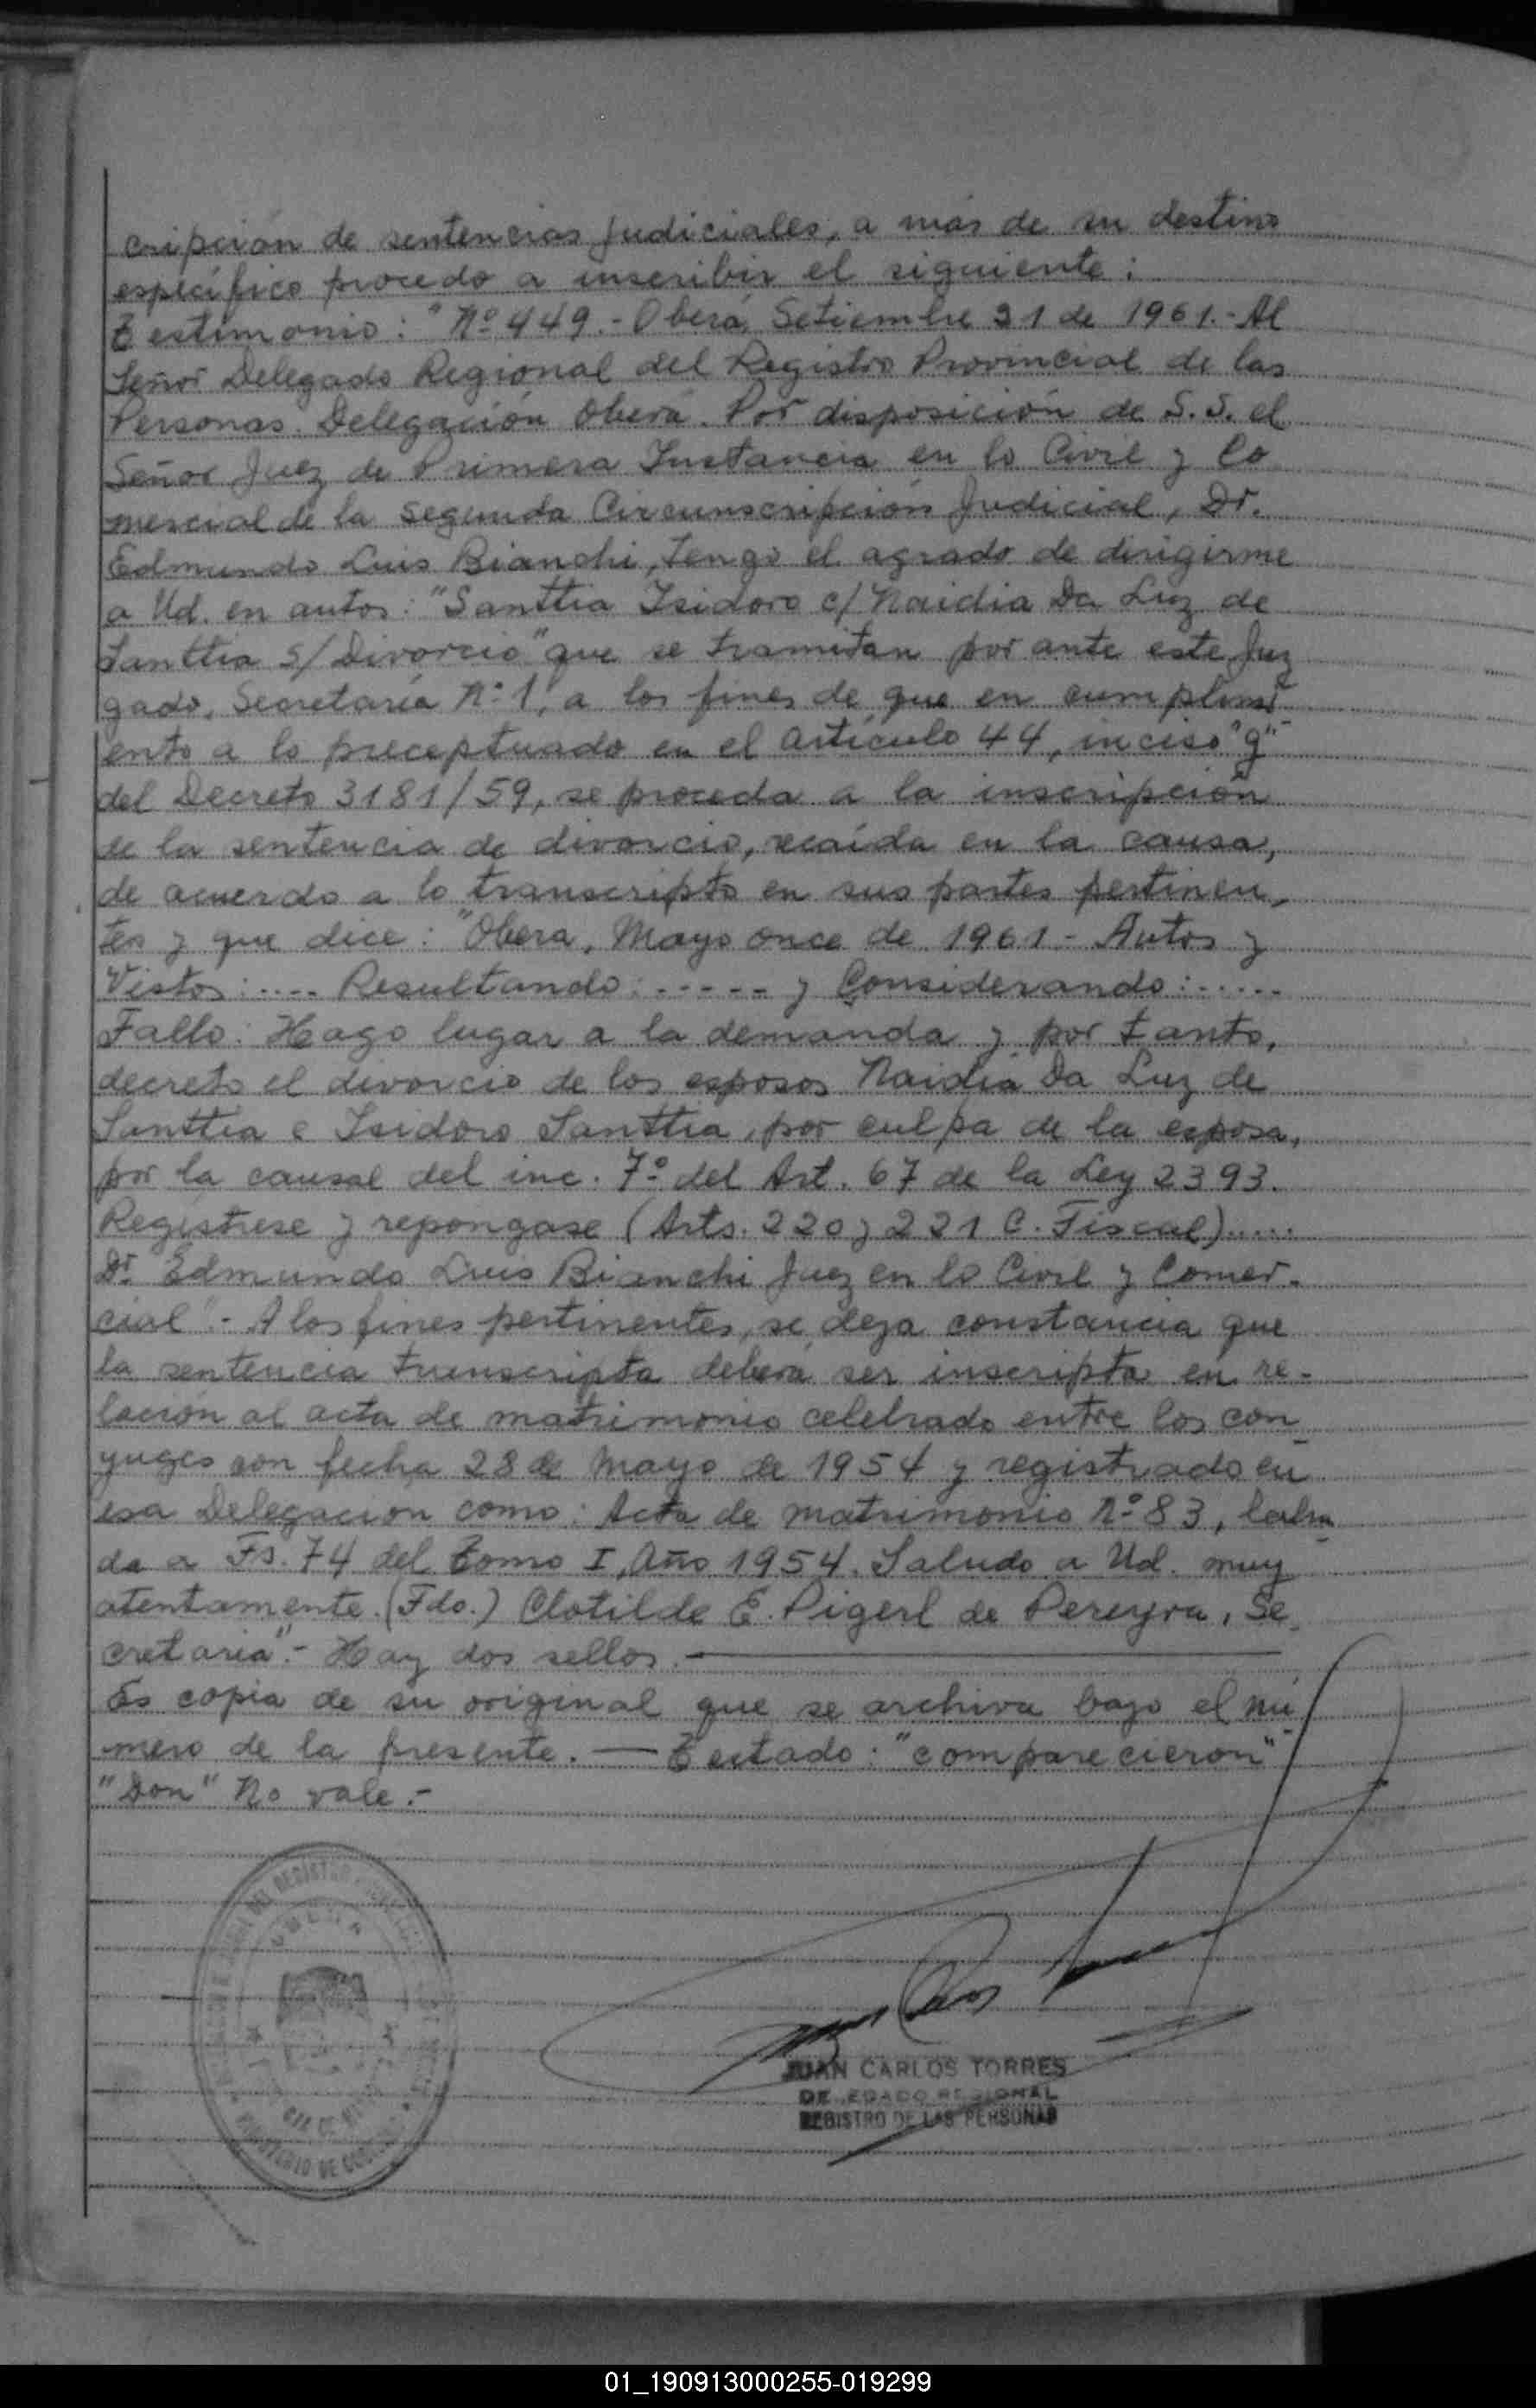 cripción de sentencias judiciales, a más de su destino
específico procedo a inscribir el siguiente:
Testimonio: "Nº 449.- Oberá, Setiembre 21 de 1961.- Al
Señor Delegado Regional del Registro Provincial de las
Personas. Delegación Oberá. Por disposición de S.S. el
Señor Juez de Primera Instancia en lo Civil y Co
mercial de la Segunda Circunscripción Judicial, Dr.
Edmundo Luis Bianchi, tengo el agrado de dirigirme
a Ud. en autos: "Santtia Isidoro c/ Naidia Da Luz de
Santtia s/ Divorcio" que se tramitan por ante este Juz
gado, Secretaría Nº 1, a los fines de que en cumplimi
ento a lo preceptuado en el artículo 44, inciso "g"
del Decreto 3181/59, se proceda a la inscripción
de la sentencia de divorcio, recaída en la causa,
de acuerdo a lo transcripto en sus partes pertinen,
tes y que dice: "Oberá, Mayo once de 1961 - Autos y
Vistos: .... Resultando: ----- y Considerando: .....
Fallo: Hago lugar a la demanda y por tanto,
decreto el divorcio de los esposos Naidia Da Luz de
Santtia e Isidoro Santtia, por culpa de la esposa,
por la causal del inc. 7º del Art. 67 de la Ley 2393.
Regístrese y repóngase (Arts. 220 y 221 C. Fiscal).....
Dr. Edmundo Luis Bianchi Juez en lo Civil y Comer-
cial".- A los fines pertinentes, se deja constancia que
la sentencia transcripta deberá ser inscripta en re-
lación al acta de matrimonio celebrado entre los con
yuges con fecha 28 de Mayo de 1954 y registrado en
esa Delegación como: Acta de matrimonio Nº 83, labra
da a Fs. 74 del Tomo I, Año 1954. Saludo a Ud. muy
atentamente. (Fdo.) Clotilde E. Pigerl de Pereyra, Se
cretaria".- Hay dos sellos.-
Es copia de su original que se archiva bajo el nú
mero de la presente. — Testado: "comparecieron"
"Don" No vale.-
JUAN CARLOS TORRES
DELEGADO REGIONAL
REGISTRO DE LAS PERSONAS
01_190913000255-019299